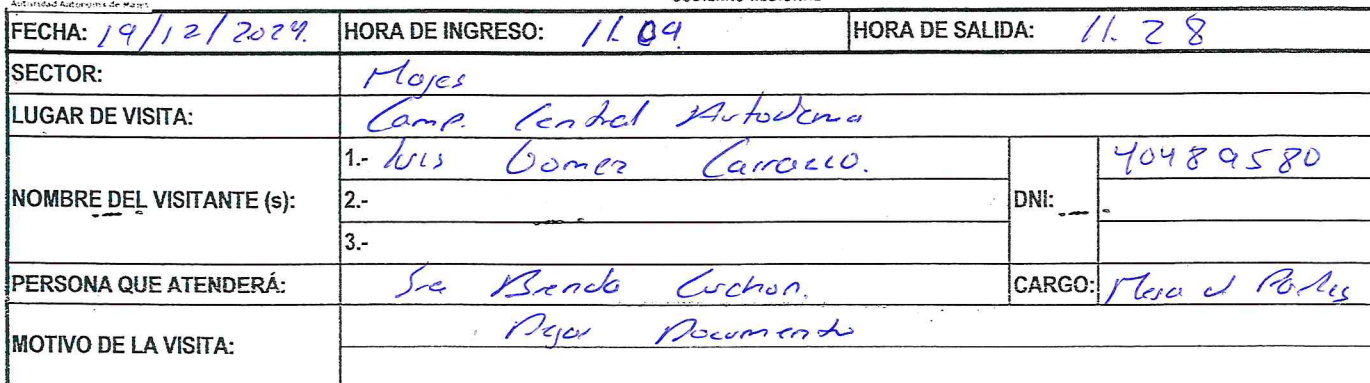 Autoridad Autonoma de Majes
FECHA: 19/12/2024. HORA DE INGRESO: 11.09 HORA DE SALIDA: 11.28
SECTOR: Majes
LUGAR DE VISITA: Camp. Central Autodema
NOMBRE DEL VISITANTE (s): 1.- Luis Gomez Carrasco. DNI: 40489580
2.-
3.-
PERSONA QUE ATENDERÁ: Sra Brenda CARGO: Mesa d Partes
MOTIVO DE LA VISITA: Dejar Documento